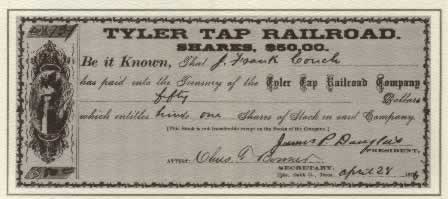 TYLER TAP RAILROAD.
SHARES, $50.00.
Be it Known, That J. Frank Couch
has paid into the Treasury of the Tyler Tap Railroad Company
fifty Dollars
which entitles him to one Shares of Stock in said Company.
[This Stock is not transferable except on the Books of the Company.]
James P. Douglas
PRESIDENT.
ATTEST: Chas. T. Bonner
SECRETARY.
Tyler, Smith Co., Texas, April 28